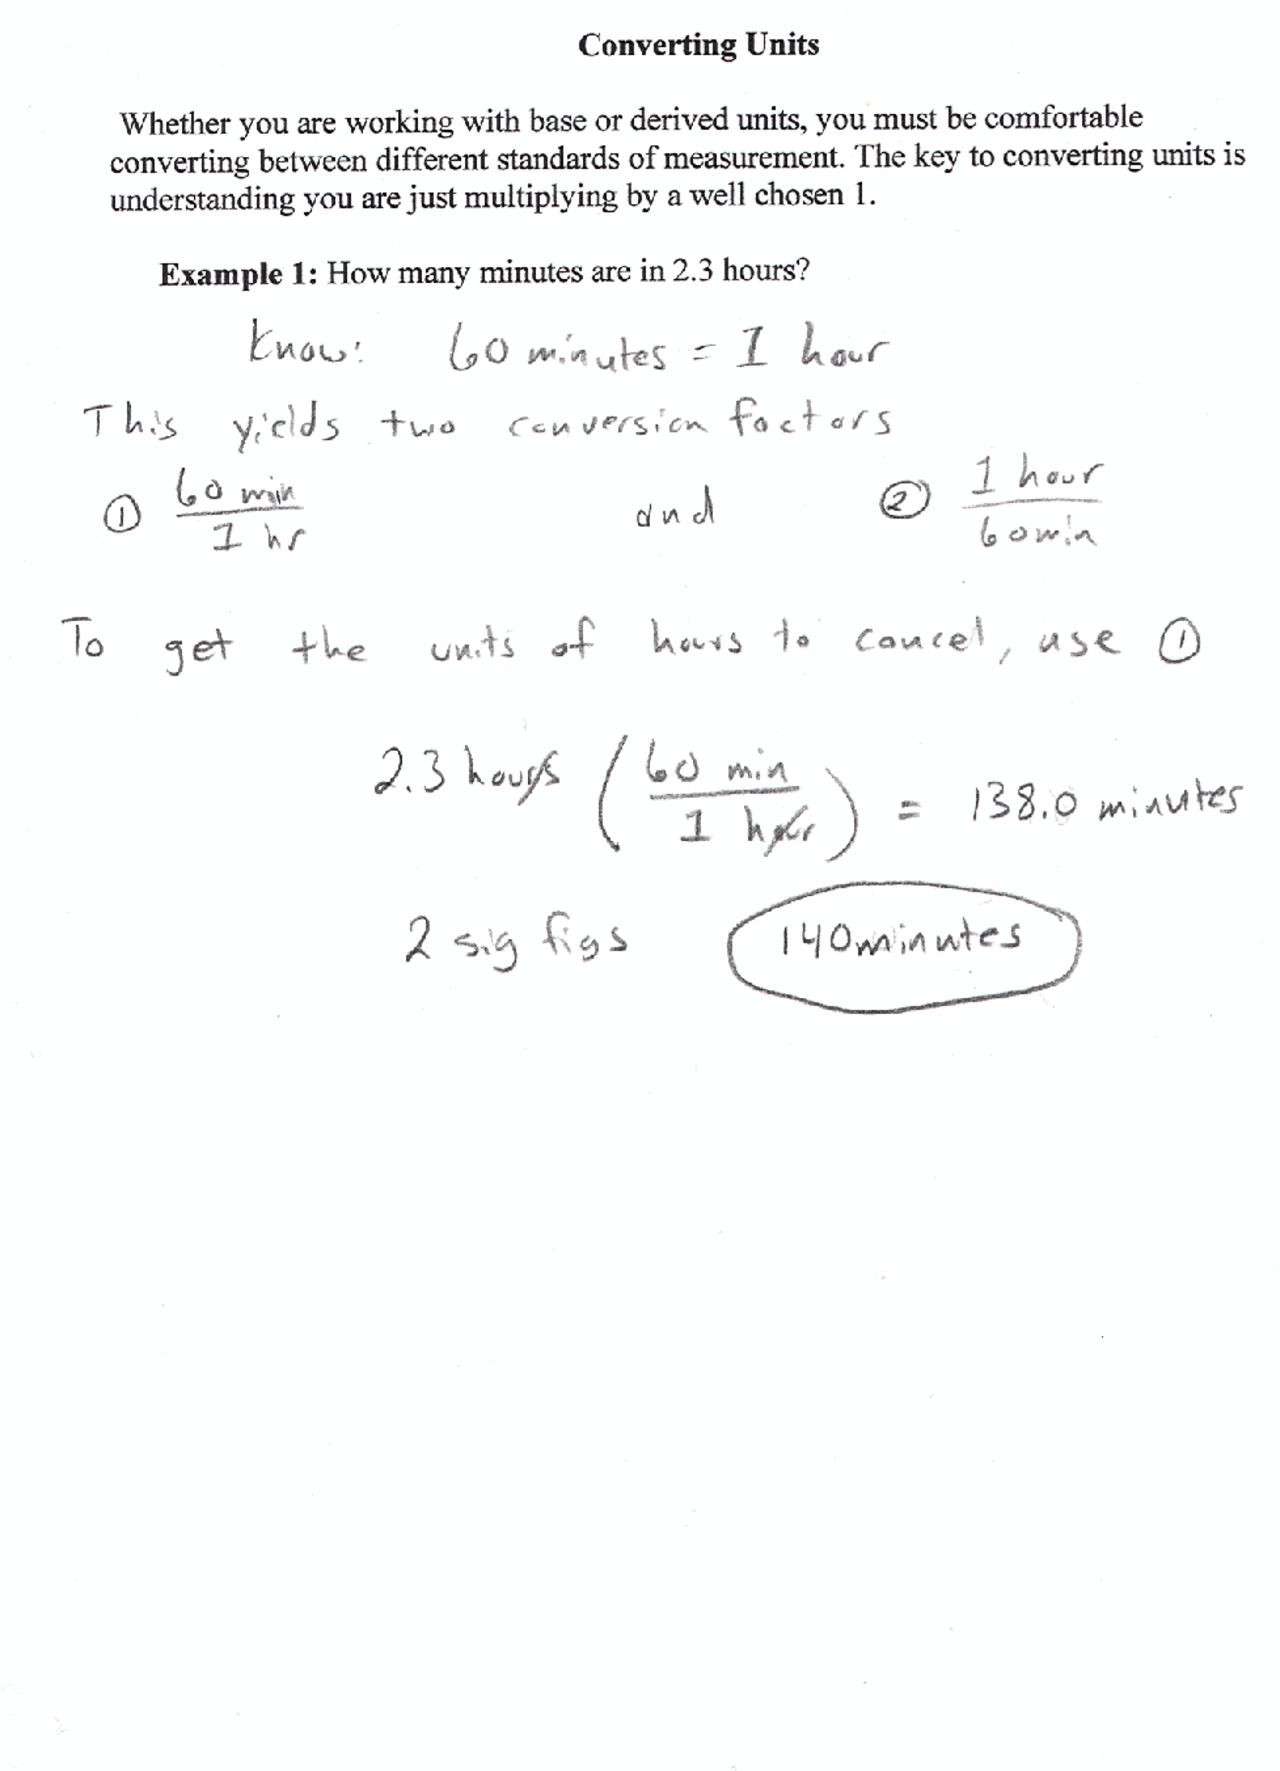 Converting Units
Whether you are working with base or derived units, you must be comfortable
converting between different standards of measurement. The key to converting units is
understanding you are just multiplying by a well chosen 1.
Example 1: How many minutes are in 2.3 hours?
Know: 60 minutes = 1 hour
This yields two conversion factors
① 60 min / 1 hr and ② 1 hour / 60 min
To get the units of hours to cancel, use ①
2.3 hours ( 60 min / 1 hour ) = 138.0 minutes
2 sig figs 140 minutes